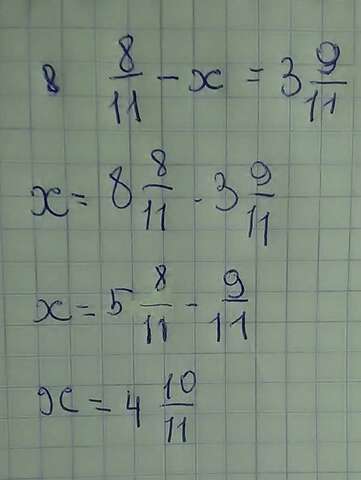 8 8/11 - x = 3 9/11
x = 8 8/11 - 3 9/11
x = 5 8/11 - 9/11
x = 4 10/11